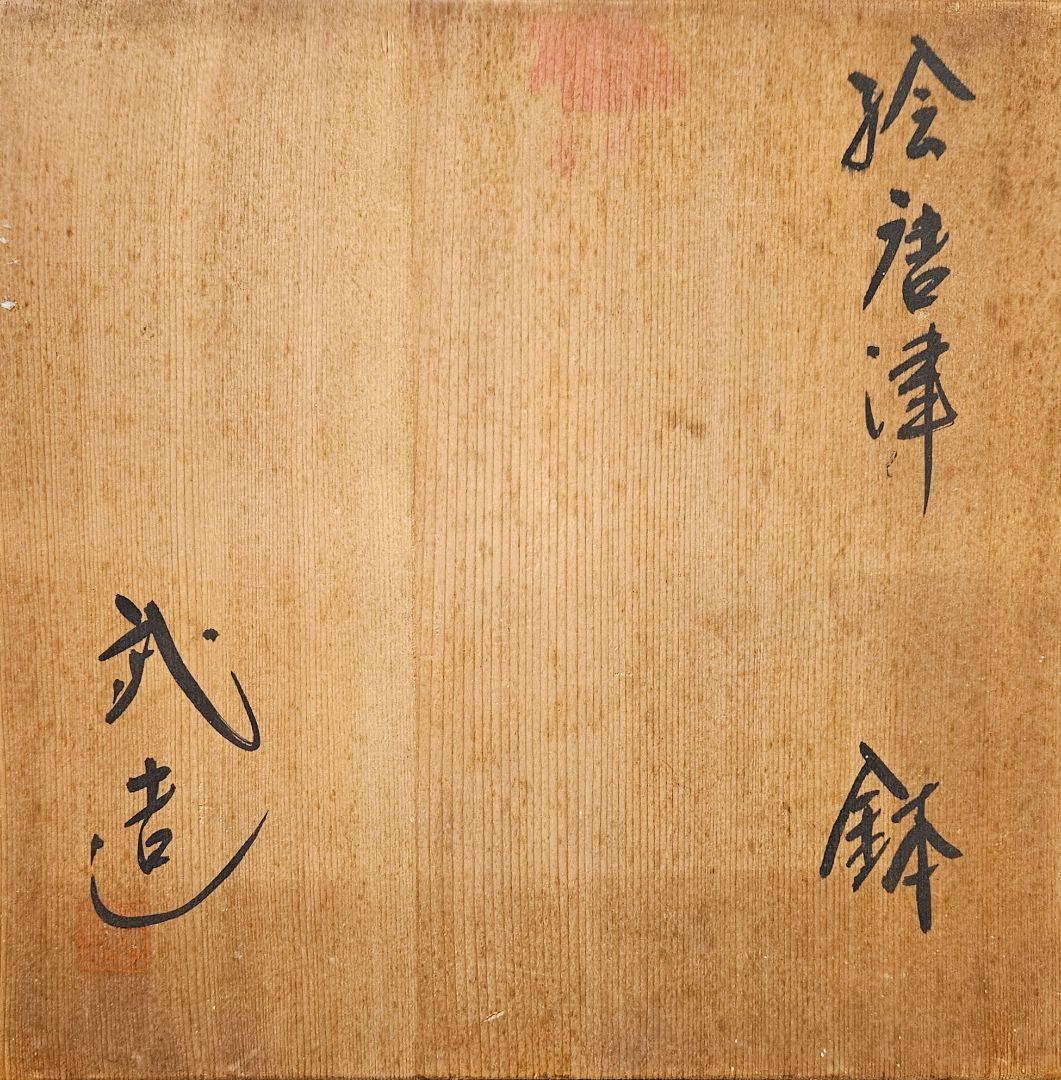 絵唐津 鉢
武造